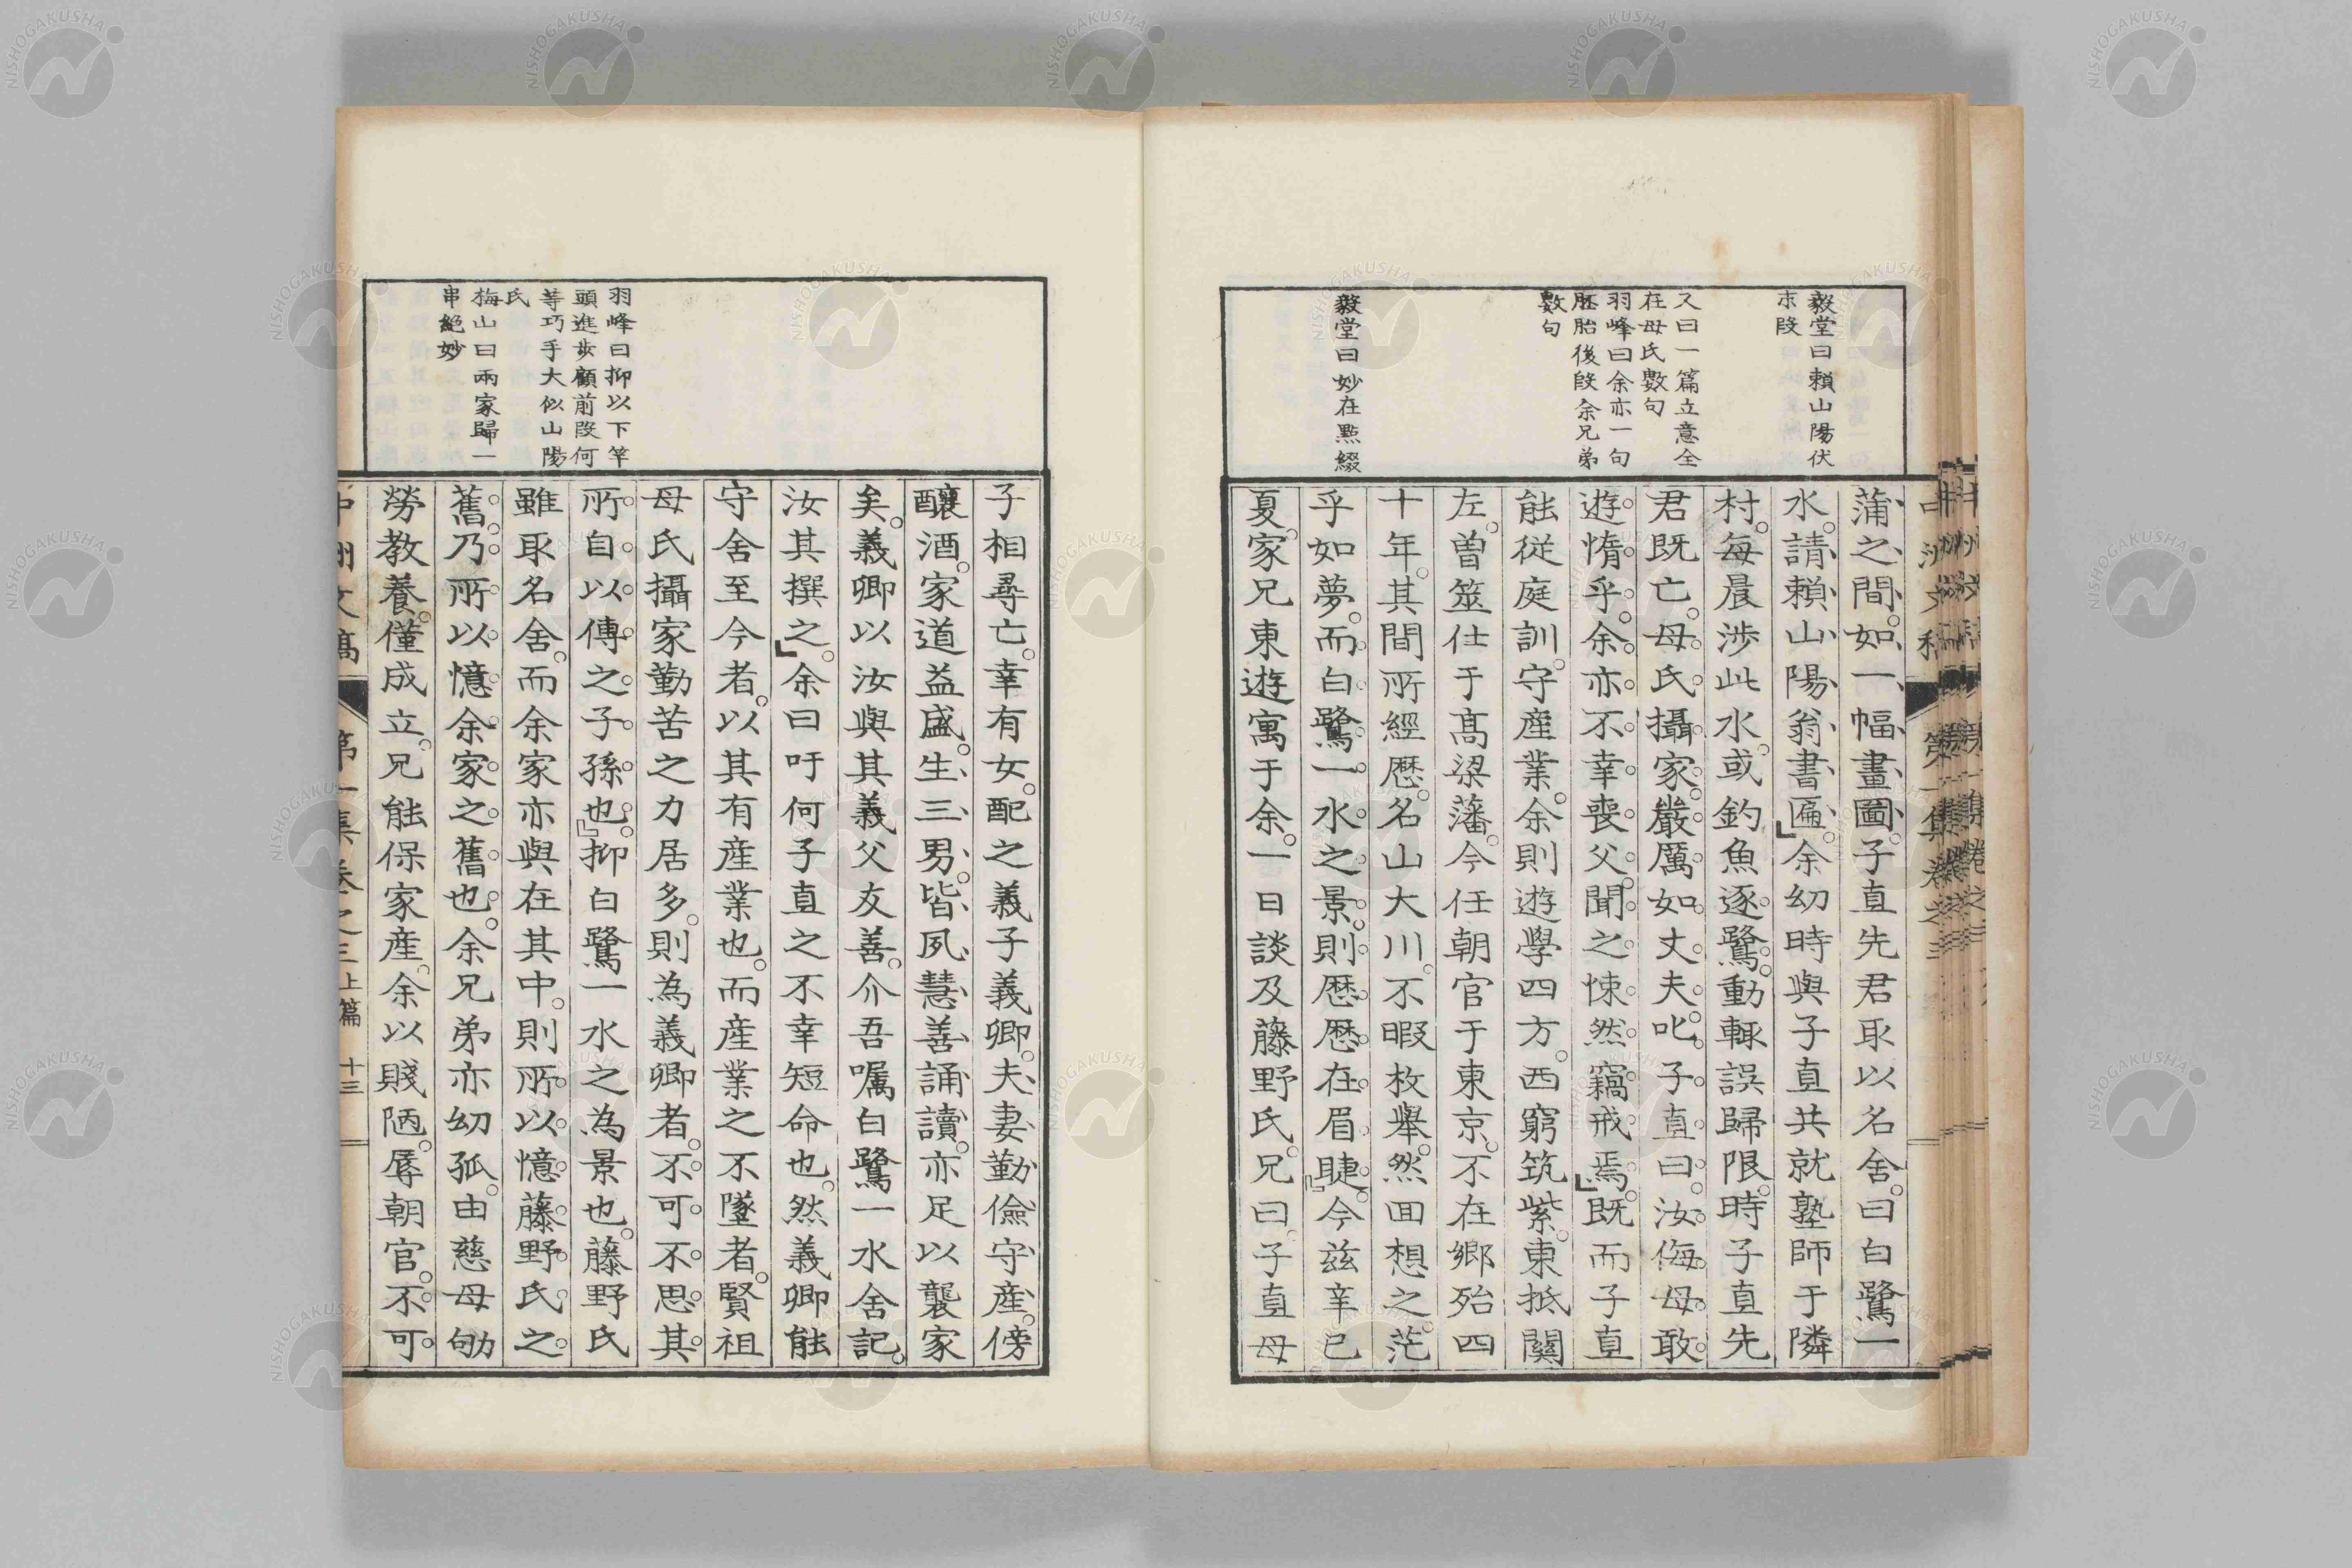 毅堂曰賴山陽伏
末段
又曰一篇立意全
在母氏數句
羽峰曰余亦一句
胚胎後段余兄弟
數句
毅堂曰妙在點綴
蒲之間。如一幅畫圖。子直先君取以名舍。曰白鷺一
水。請賴山陽翁書匾。余幼時與子直共就塾師于隣
村。每晨涉此水。或釣魚逐鷺。動輒誤歸限。時子直先
君既亡。母氏攝家。嚴厲如丈夫。叱子直曰。汝侮母敢
遊惰乎。余亦不幸喪父。聞之悚然竊戒焉。既而子直
能從庭訓。守產業。余則遊學四方。西窮筑紫。東抵關
左。曾筮仕于高梁藩。今任朝官于東京。不在鄉殆四
十年。其間所經歷。名山大川。不暇枚舉。然回想之。茫
乎如夢。而白鷺一水之景。則歷歷在眉睫。今茲辛巳
夏。家兄東遊寓于余。一日談及藤野氏。兄曰。子直母
子相尋亡。幸有女。配之義子義卿。夫妻勤儉守產。傍
釀酒。家道益盛。生三男。皆夙慧善誦讀。亦足以襲家
矣。義卿以汝與其義父友善。介吾囑白鷺一水舍記。
汝其撰之。余曰吁何子直之不幸短命也。然義卿能
守舍至今者。以其有產業也。而產業之不墜者。賢祖
母氏攝家勤苦之力居多。則為義卿者。不可不思其
所自以傳之子孫也。抑白鷺一水之為景也。藤野氏
雖取名舍。而余家亦與在其中。則所以憶藤野氏之
舊。乃所以憶余家之舊也。余兄弟亦幼孤。由慈母劬
勞教養。僅成立。兄能保家產。余以賤陋。辱朝官。不可
羽峰曰抑以下竿
頭進步顧前段何
等巧手大似山陽
氏
梅山曰兩家歸一
串絕妙
第一集卷之三上篇 十三